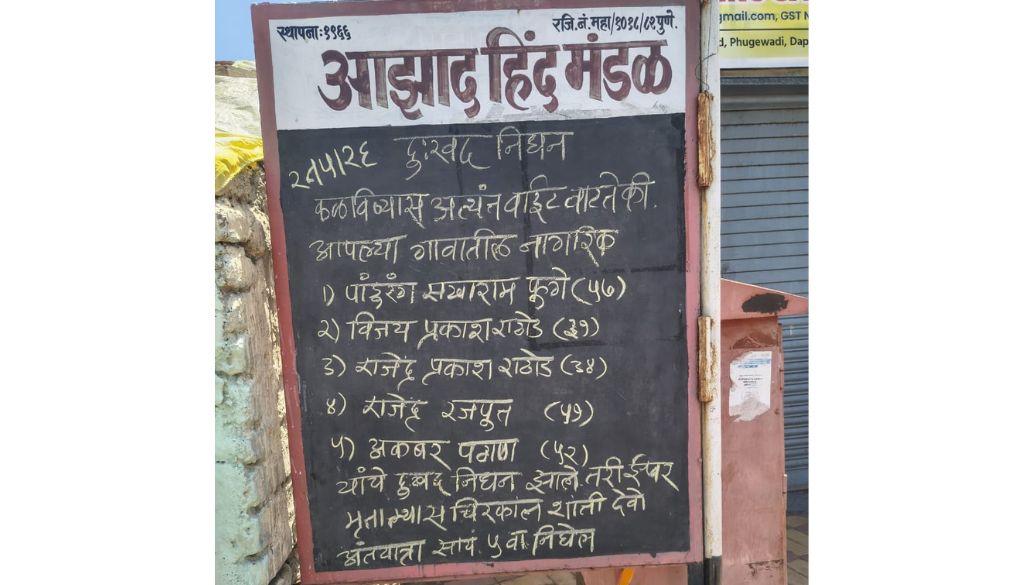 स्थापना:१९६६ रजि.नं.महा/१०१८/८१ पुणे.
आझाद हिंद मंडळ
gmail.com, GST N
d, Phugewadi, Dap
दुःखद निधन
कळविण्यास अत्यंत वाईट वाटते की.
आपल्या गावातील नागरिक
१) पांडुरंग सखाराम फुगे (५७)
२) विजय प्रकाश राठोड (३१)
३) राजेंद्र प्रकाश राठोड (३४)
४) राजेंद्र रजपूत (५१)
५) अकबर पठाण (५२)
यांचे दुःखद निधन झाले. तरी ईश्वर
मृतात्म्यास चिरकाल शांती देवो
अंतयात्रा सायं. ५ वा. निघेल